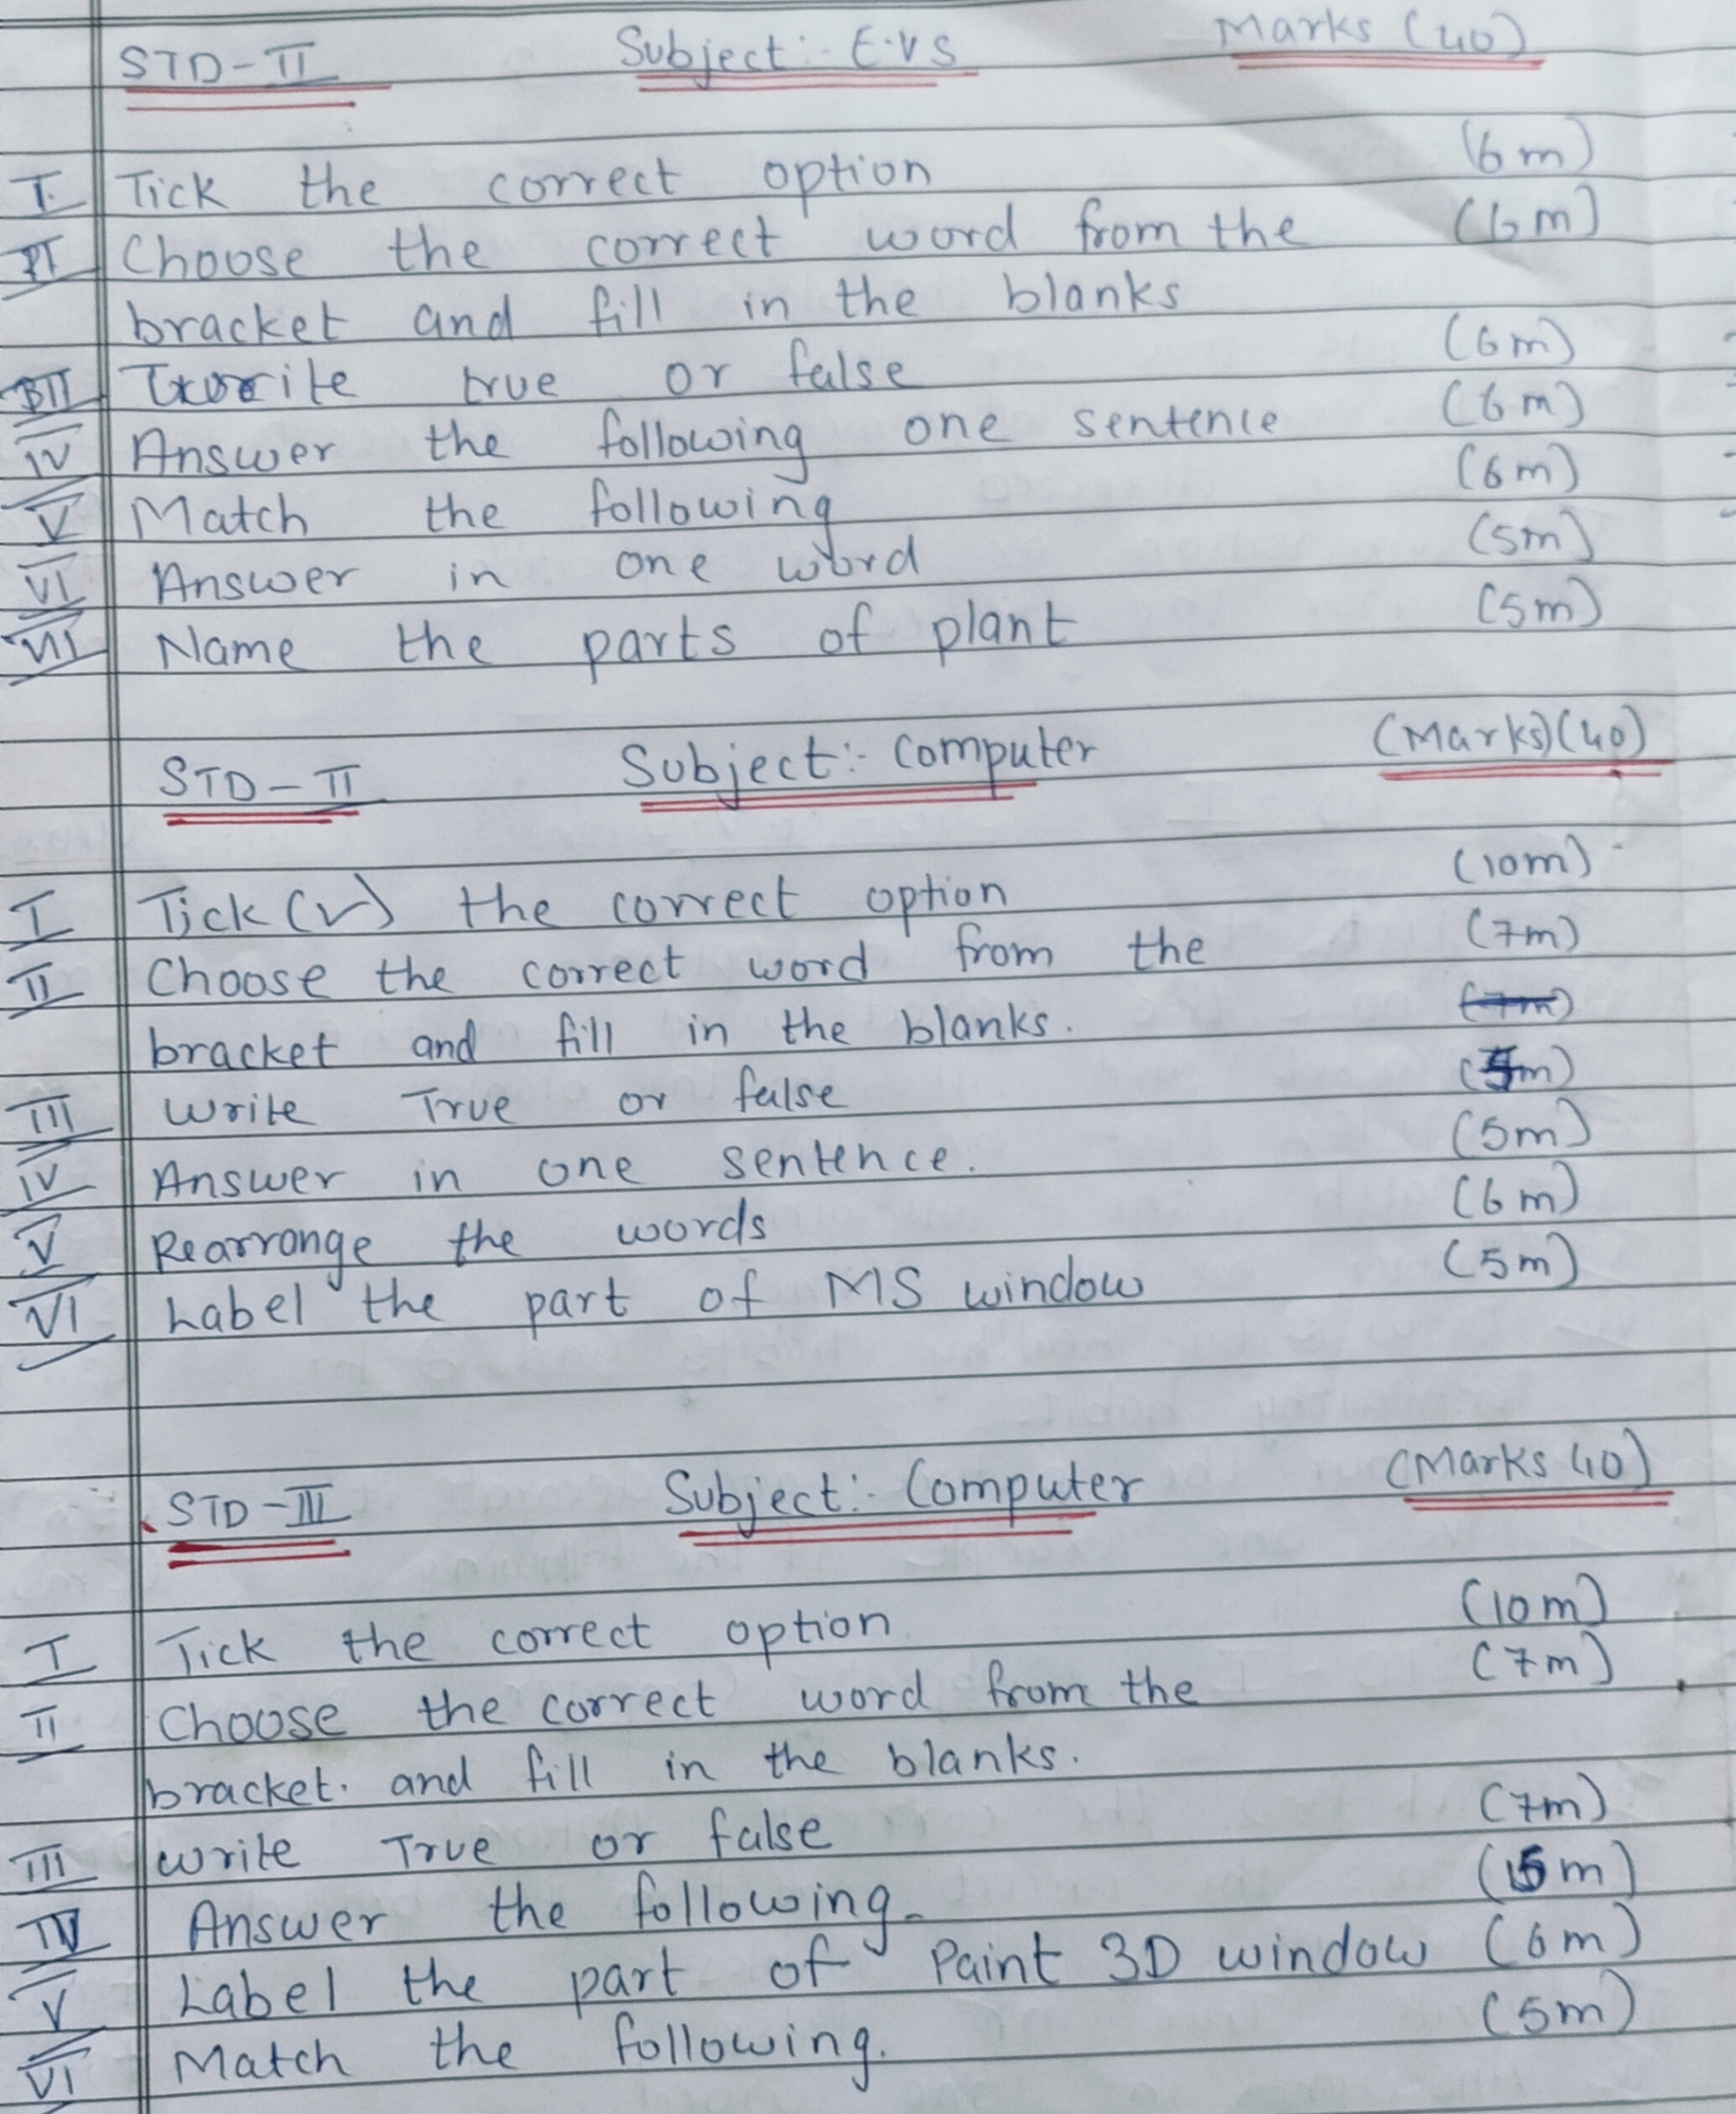 STD-II Subject:- E.V.S Marks (40)
I. Tick the correct option (6m)
II Choose the correct word from the (6m)
bracket and fill in the blanks
III write true or false (6m)
IV Answer the following one sentence (6m)
V Match the following (6m)
VI Answer in one word (5m)
VII Name the parts of plant (5m)
STD-II Subject:- Computer (Marks)(40)
I Tick (✓) the correct option (10m)
II Choose the correct word from the (7m)
bracket and fill in the blanks. (7m)
III Write True or false
IV Answer in one sentence. (5m)
V Rearrange the words (6m)
VI Label the part of MS window (5m)
STD-III Subject:- Computer (Marks 40)
I Tick the correct option (10m)
II Choose the correct word from the (7m)
bracket. and fill in the blanks.
III Write True or false (7m)
IV Answer the following. (5m)
V Label the part of Paint 3D window (6m)
VI Match the following. (5m)